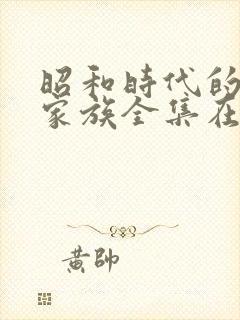 昭和時代的
家族全集在
黃帥